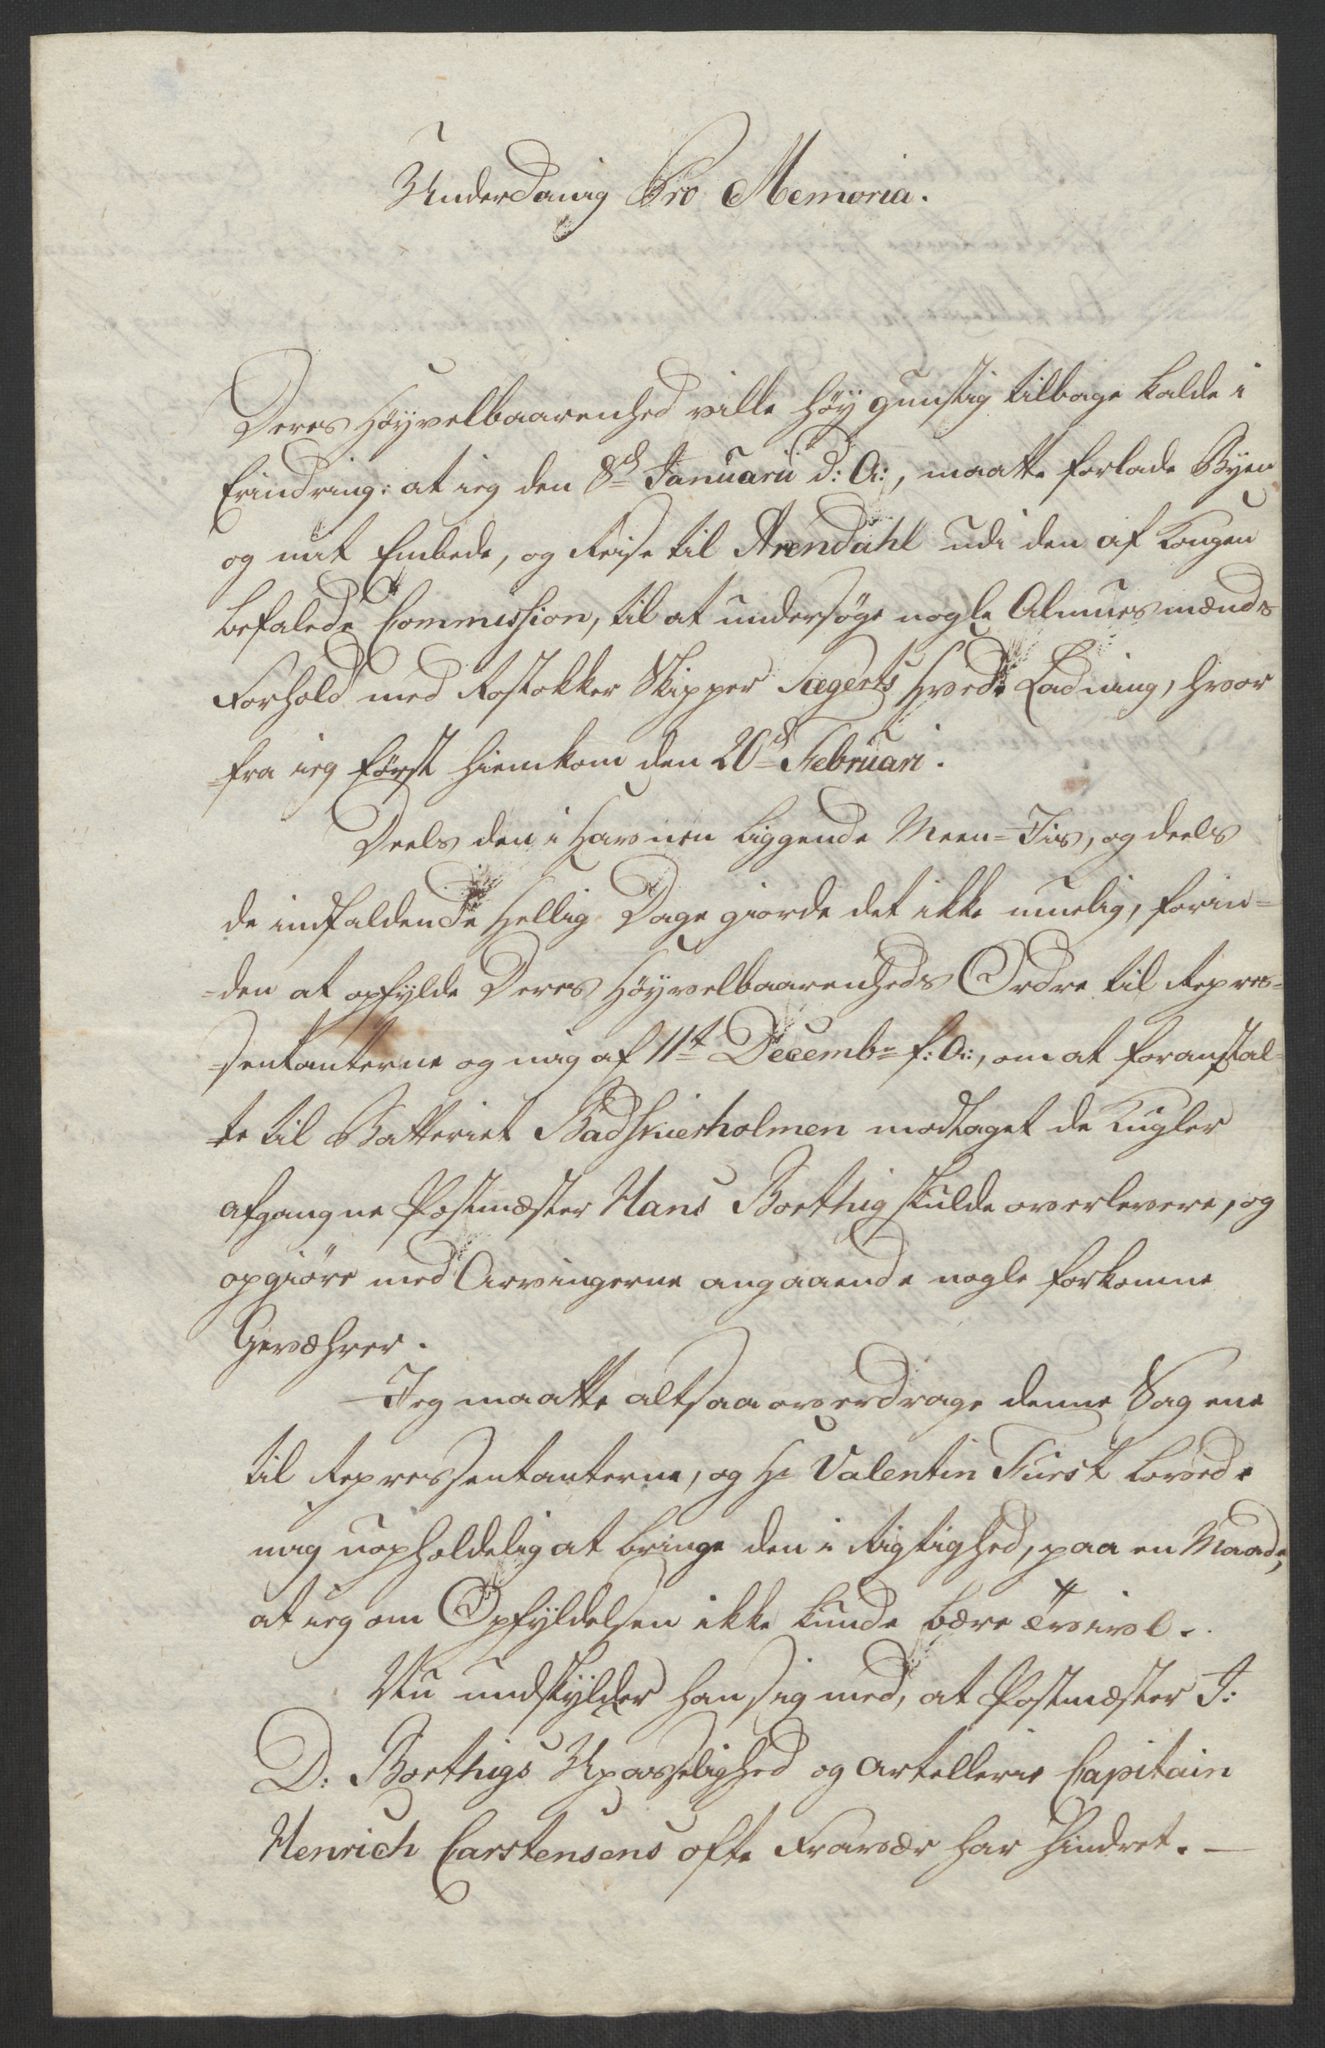 Underdanig Pro Memoria.
Deres Høyvelbaarenhed ville høy gunstig tilbage kalde i
Erindring: at ieg den 8de Januarii d: A:, maatte forlade Byen
og mit Embede, og Reise til Arendahl udi den af Kongen
befalede Commission, til at undersøge nogle Almues mænds
Forhold med Rostokker Skipper Segerts Hvede Ladning, hvor
-fra ieg først hiemkom den 20de Februari.
Deels den i Havnen liggende Meen-Iis, og deels
de indfaldende Hellig Dage giorde det ikke muelig, forin-
-den at opfylde Deres Høyvelbaarenheds Ordre til Repres-
-sentanterne og mig af 11te Decembr f: A:, om at foranstal-
te til Batteriet Badskierholmen modtaget de Kugler
afgangne Postmæster Hans Boethig skulde overlevere, og
opgiøre med Arvingerne angaaende nogle forkomne
Gevæhrer.
Jeg maatte altsaa overdrage denne Sag ene
til Repressentanterne, og Hr Valentin Fürst lovede
mig uopholdelig at bringe den i Rigtighed, paa en Maade,
at ieg om Opfyldelsen ikke kunde bære tvivl.
Nu undskylder han sig med, at Postmæster J:
D: Boethigs Upasselighed og Artellerie Capitain
Henrich Carstensens ofte Fravær har hindret. —